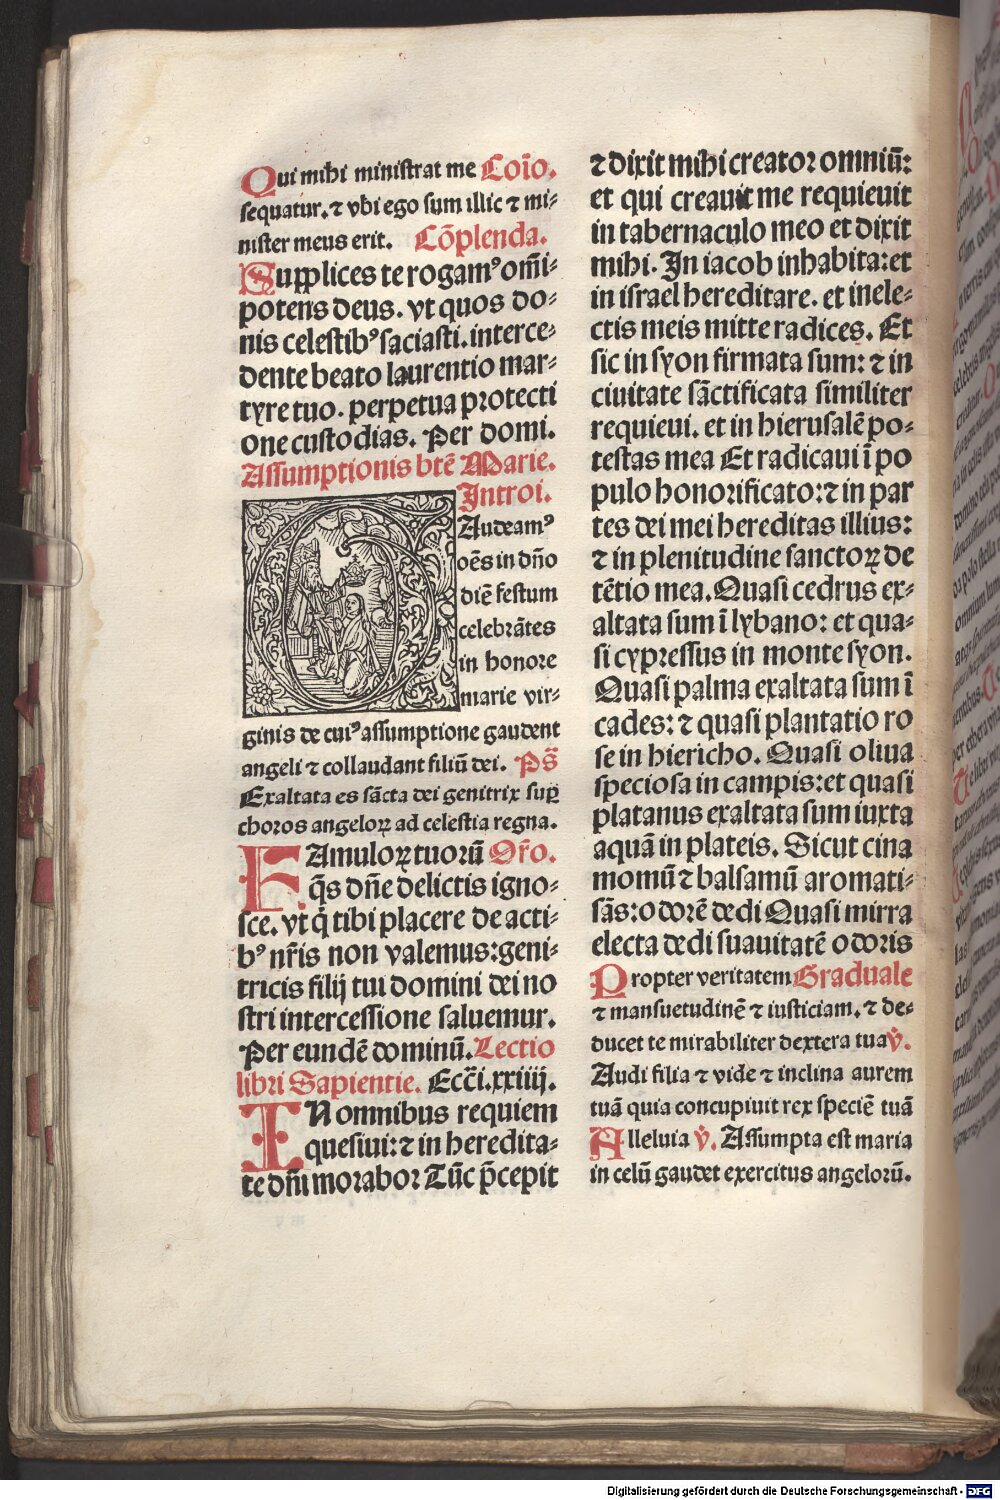 Qui mihi ministrat me Coīo.
sequatur. ⁊ vbi ego sum illic ⁊ mi-
nister meus erit. Cōplenda.
Supplices te rogamꝰ omīi-
potens deus. vt quos do-
nis celestibꝰ saciasti. interce-
dente beato laurentio mar-
tyre tuo. perpetua protecti
one custodias. Per domi.
Assumptionis btē Marie.
Introi.
Audeamꝰ
oēs in dn̄o
diē festum
celebrātes
in honore
marie vir-
ginis de cuiꝰ assumptione gaudent
angeli ⁊ collaudant filiū dei. Ps̄
Exaltata es sācta dei genitrix suꝑ
choros angeloꝝ ad celestia regna.
FAmuloꝝ tuorū Or̄o.
q̄s dn̄e delictis igno-
sce. vt q̄ tibi placere de acti-
bꝰ nr̄is non valemus: geni-
tricis filij tui domini dei no
stri intercessione saluemur.
Per eundē dominū. Lectio
libri Sapientie. Ecc̄i. xxiiij.
IN omnibus requiem
quesiui: ⁊ in heredita-
te dn̄i morabor Tūc p̄cepit
⁊ dixit mihi creator omniū:
et qui creauit me requieuit
in tabernaculo meo et dixit
mihi. In iacob inhabita: et
in israel hereditare. et in ele-
ctis meis mitte radices. Et
sic in syon firmata sum: ⁊ in
ciuitate sāctificata similiter
requieui. et in hierusalē po-
testas mea Et radicaui ī po
pulo honorificato: ⁊ in par
tes dei mei hereditas illius:
⁊ in plenitudine sanctoꝝ de
tētio mea. Quasi cedrus ex-
altata sum ī lybano: et qua-
si cypressus in monte syon.
Quasi palma exaltata sum ī
cades: ⁊ quasi plantatio ro
se in hiericho. Quasi oliua
speciosa in campis: et quasi
platanus exaltata sum iuxta
aquā in plateis. Sicut cina
momū ⁊ balsamū aromati-
sās: odorē dedi Quasi mirra
electa dedi suauitatē odoris
Propter veritatem Graduale
⁊ mansuetudinē ⁊ iusticiam. ⁊ de-
ducet te mirabiliter dextera tua ℣.
Audi filia ⁊ vide ⁊ inclina aurem
tuā quia concupiuit rex speciē tuā
Alleluia ℣. Assumpta est maria
in celū gaudet exercitus angelorū.
Digitalisierung gefördert durch die Deutsche Forschungsgemeinschaft - DFG